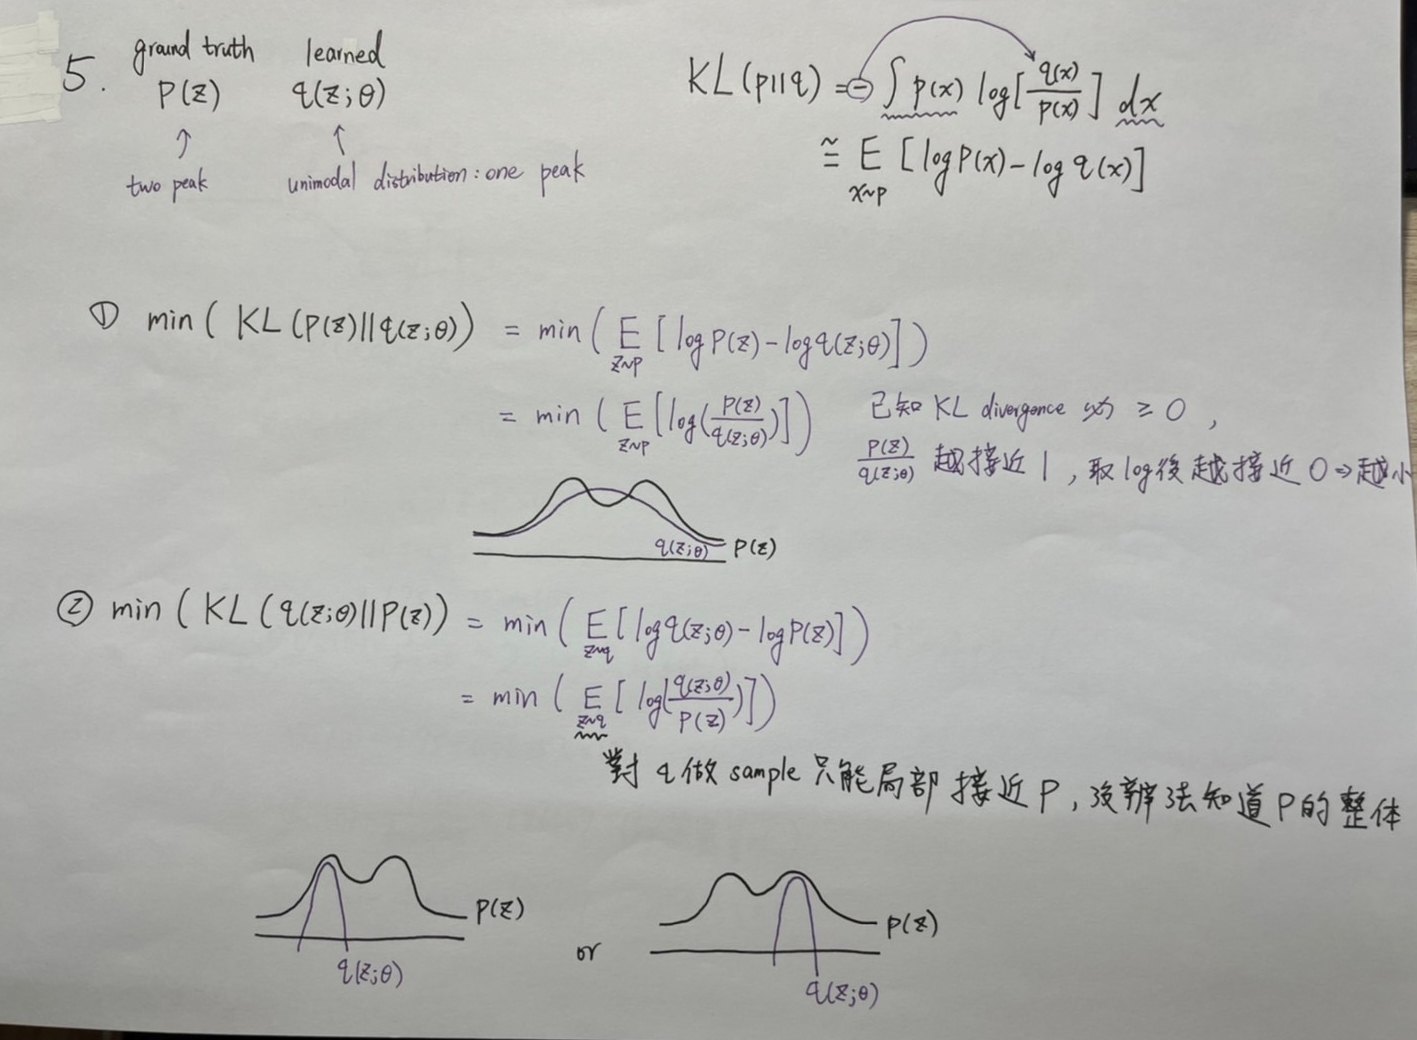 5. ground truth learned
P(z) q(z;θ)
two peak unimodal distribution : one peak
KL(p||q) = - ∫ p(x) log[q(x)/p(x)] dx
≅ E x~p [log P(x) - log q(x)]
① min( KL(P(z)||q(z;θ)) = min( E z~p [log P(z) - log q(z;θ)])
= min( E z~p [log(P(z)/q(z;θ))])
已知 KL divergence 必為 ≥ 0,
P(z)/q(z;θ) 越接近 1, 取 log 後越接近 0 → 越小
q(z;θ) P(z)
② min( KL(q(z;θ)||P(z)) = min( E z~q [log q(z;θ) - log P(z)])
= min( E z~q [log(q(z;θ)/P(z))])
對 q 做 sample 只能局部接近 P, 沒辦法知道 P 的整体
P(z)
q(z;θ)
or
P(z)
q(z;θ)